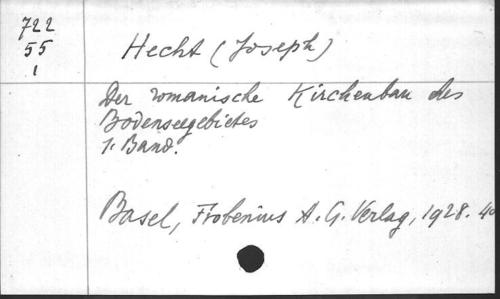 722
55
1
Hecht (Joseph)
Der romanische Kirchenbau des
Bodenseegebietes
1. Band.
Basel, Frobenius A. G. Verlag, 1928. 4o